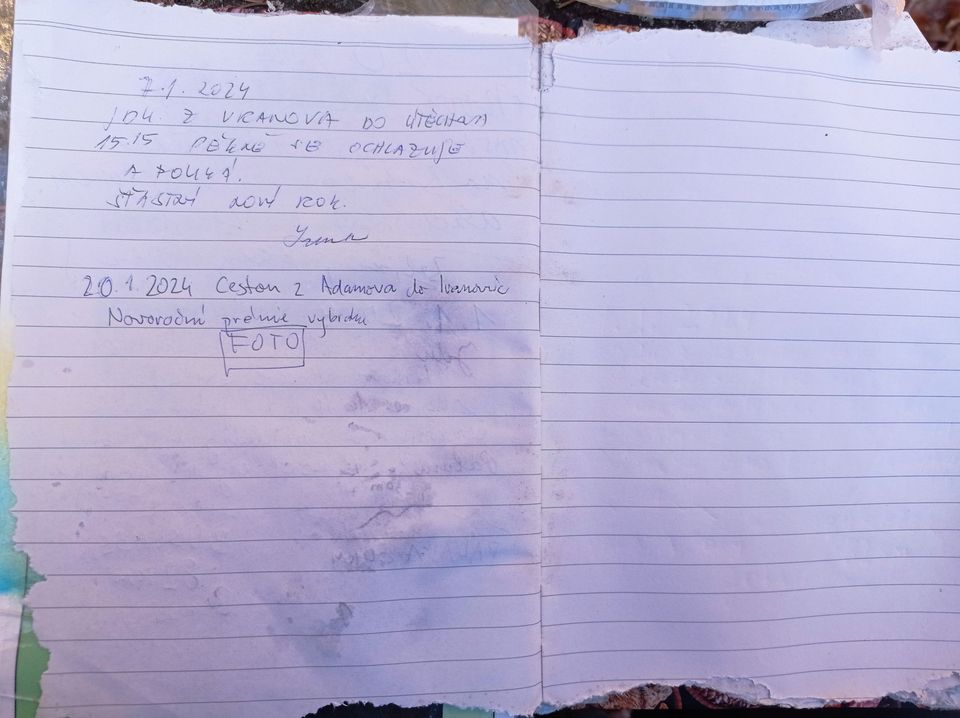 7.1. 2024
JDU. Z VRANOVA DO ÚTĚCHOVA
15.15 PĚKNĚ SE OCHLAZUJE
A FOUKÁ.
ŠŤASTNÝ NOVÝ ROK.
20.1.2024 Cestou z Adamova do Ivanovic
Novoroční prémie vybrána
FOTO